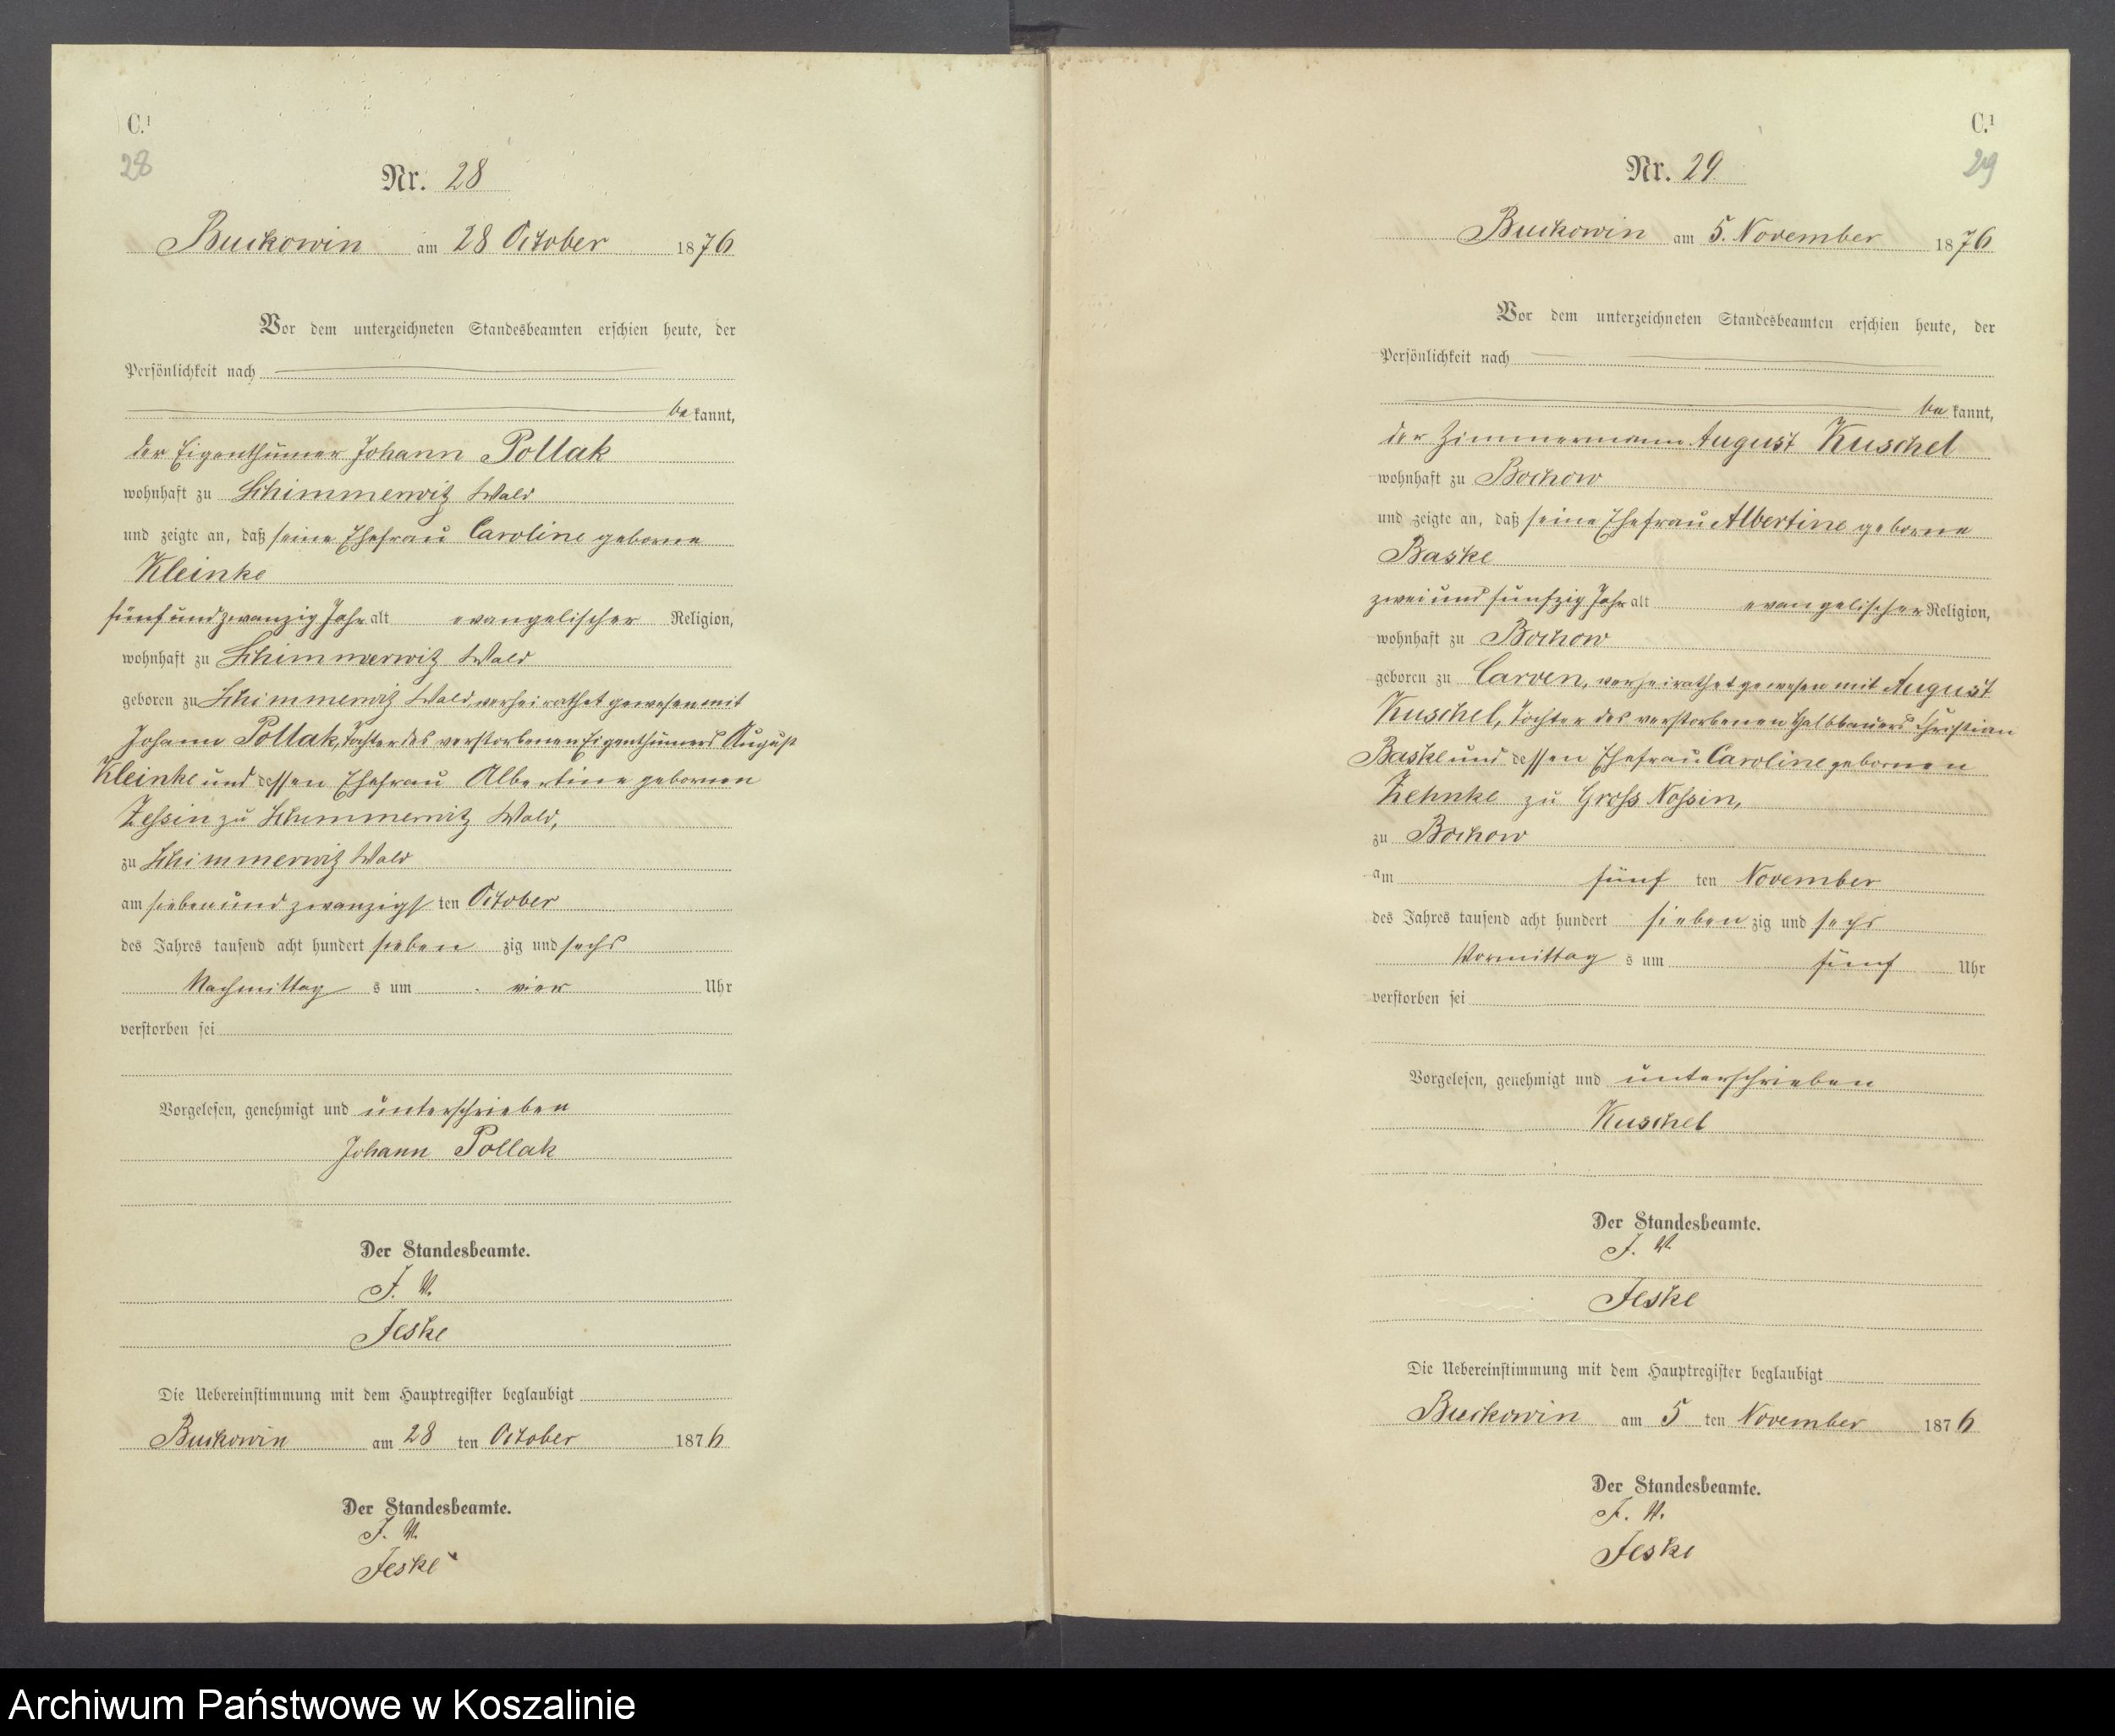 C.¹
28
Nr. 28
Buckowin am 28 October 1876
Vor dem unterzeichneten Standesbeamten erschien heute, der
Persönlichkeit nach
be kannt,
der Eigenthümer Johann Pollak
wohnhaft zu Schimmerwitz Wald
und zeigte an, daß seine Ehefrau Caroline geborne
Kleinke
fünf und zwanzig Jahr alt evangelischer Religion,
wohnhaft zu Schimmerwitz Wald
geboren zu Schimmerwitz Wald verheirathet gewesen mit
Johann Pollak, Tochter des verstorbenen Eigenthümers August
Kleinke und dessen Ehefrau Albertine gebornen
Zessin zu Schimmerwitz Wald,
zu Schimmerwitz Wald
am sieben und zwanzigs ten October
des Jahres tausend acht hundert sieben zig und sechs
Nachmittag s um vier Uhr
verstorben sei
Vorgelesen, genehmigt und unterschrieben
Johann Pollak
Der Standesbeamte.
J. V.
Jeske
Die Uebereinstimmung mit dem Hauptregister beglaubigt
Buckowin am 28 ten October 1876
Der Standesbeamte.
J. V.
Jeske
C.¹
29
Nr. 29
Buckowin am 5. November 1876
Vor dem unterzeichneten Standesbeamten erschien heute, der
Persönlichkeit nach
be kannt,
der Zimmermann August Kuschel
wohnhaft zu Bochow
und zeigte an, daß seine Ehefrau Albertine geborne
Baske
zwei und funfzig Jahr alt evangelischer Religion,
wohnhaft zu Bochow
geboren zu Carven, verheirathet gewesen mit August
Kuschel, Tochter des verstorbenen Halbbauers Christian
Baske und dessen Ehefrau Caroline gebornen
Zehnke zu Gross Nossin,
zu Bochow
am fünf ten November
des Jahres tausend acht hundert sieben zig und sechs
Vormittag s um fünf Uhr
verstorben sei
Vorgelesen, genehmigt und unterschrieben
Kuschel
Der Standesbeamte.
J. V.
Jeske
Die Uebereinstimmung mit dem Hauptregister beglaubigt
Buckowin am 5 ten November 1876
Der Standesbeamte.
J. V.
Jeske
Archiwum Państwowe w Koszalinie